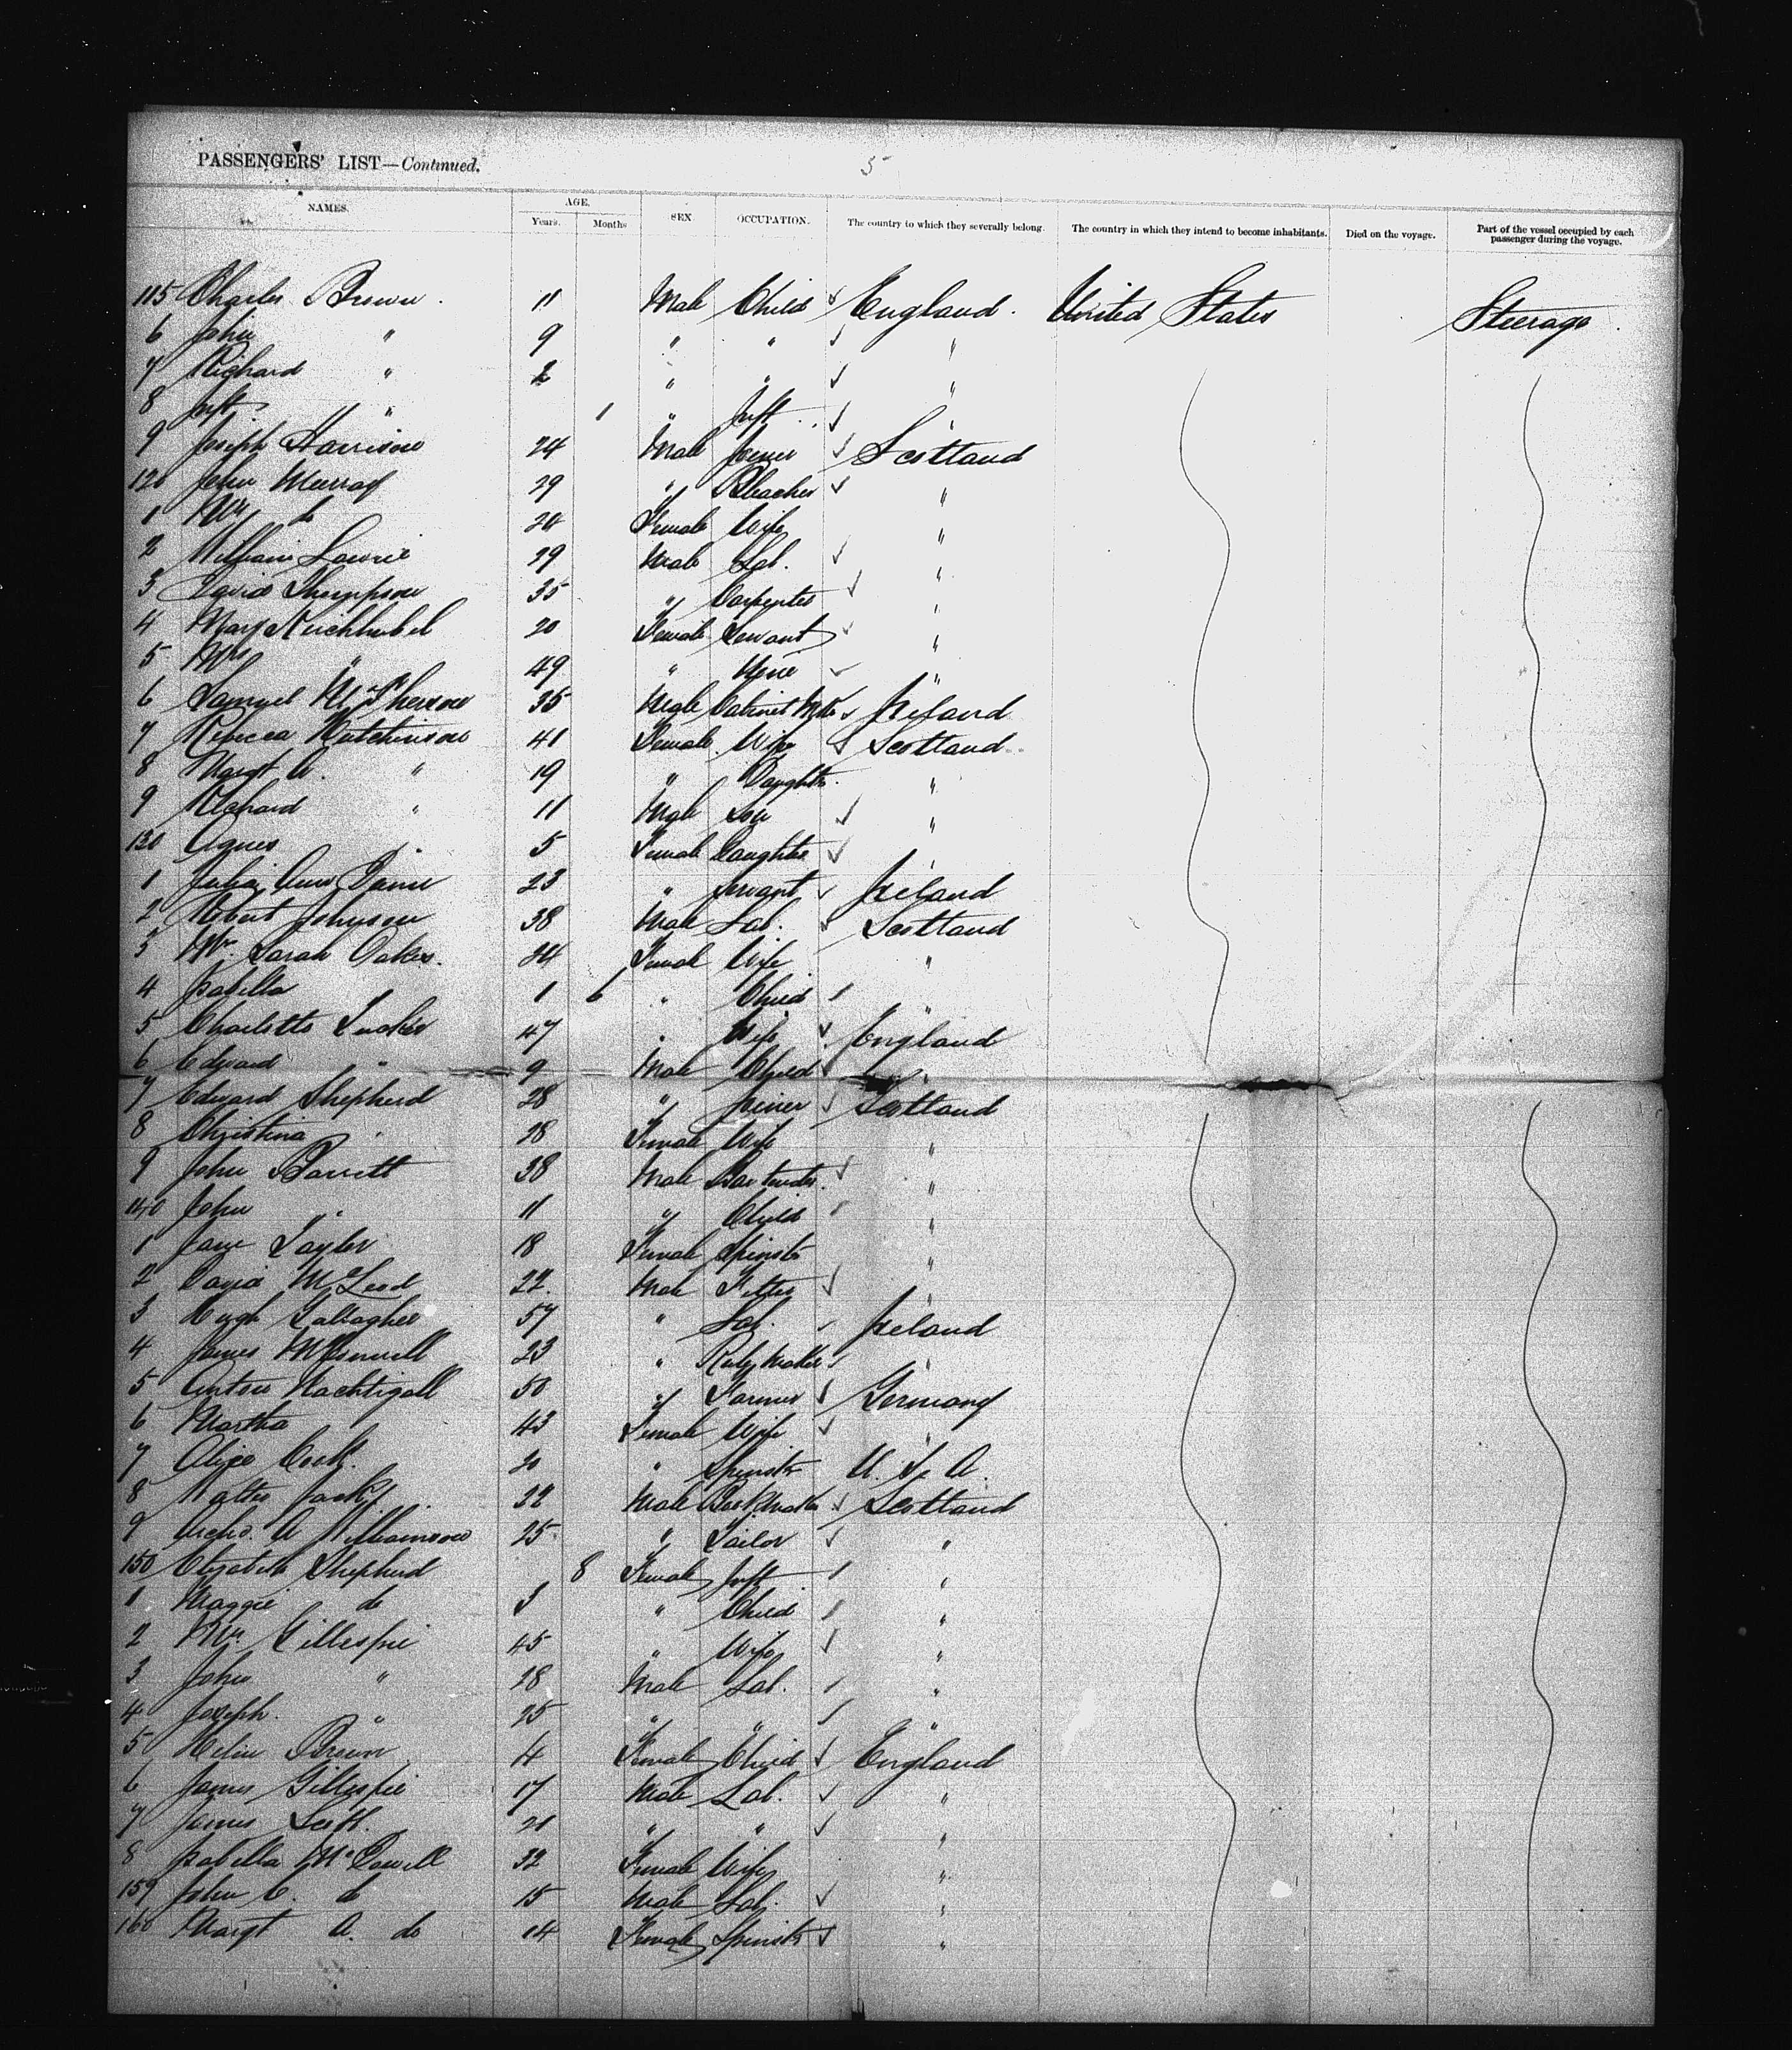 PASSENGERS' LIST—Continued. 5
NAMES. AGE. Years. Months SEX. OCCUPATION. The country to which they severally belong. The country in which they intend to become inhabitants. Died on the voyage. Part of the vessel occupied by each passenger during the voyage.
115 Charles Brown. 11 Male Child England. United States Steerage.
6 John " 9 " " "
7 Richard " 2 " " "
8 Inft. " 1 " Inft. "
9 Joseph Harrison 24 Male Joiner Scotland
120 John Murray 29 " Bleacher "
1 Mrs do 24 Female Wife "
2 William Lawrie 29 Male Lab. "
3 David Thompson 35 " Carpenter "
4 Mary 20 Female Servant "
5 Mrs " 49 " "
6 Samuel McPherson 35 Male Cabinet Mkr Ireland
7 Rebecca Hutchinson 41 Female Wife Scotland
8 Margt A. " 19 " Daughter "
9 Richard " 11 Male Son "
130 Agnes " 5 Female Daughter "
1 Julia Ann 23 " Servant Ireland
2 Robert Johnson 38 Male Lab. Scotland
3 Mrs. Sarah Oakes. 24 Female Wife "
4 Isabella " 1 6 " Child "
5 Charlotte 47 " Wife England
6 Edward " 9 Male Child "
7 Edward Shepherd 28 " Joiner Scotland
8 Christina " 28 Female Wife "
9 John Barrett 38 Male Bartender "
140 John " 11 " Child "
1 Jane Taylor 18 Female Spinster "
2 David McLeod 22. Male Fitter "
3 Hugh Gallagher 57 " Lab. Ireland
4 James 23 " "
5 Anton Nachtigall 50 " Farmer Germany
6 Martha 43 Female Wife "
7 Alice Cook. 20 " Spinster U. S. A.
8 Walter 32 Male Scotland
9 Archd. A Williamson 25 " Tailor "
150 Elizabeth Shepherd 8 Female Inft "
1 Maggie do 3 " Child "
2 Mrs. Gillespie 45 " Wife "
3 John " 18 Male Lab. "
4 Joseph. " 25 " " "
5 Brown 4 Female Child England
6 James Gillespie 17 Male Lab. "
7 James 21 " " "
8 Isabella McDowell 32 Female Wife "
159 John C. do 15 Male Lab. "
160 Margt A. do 14 Female Spinstr "